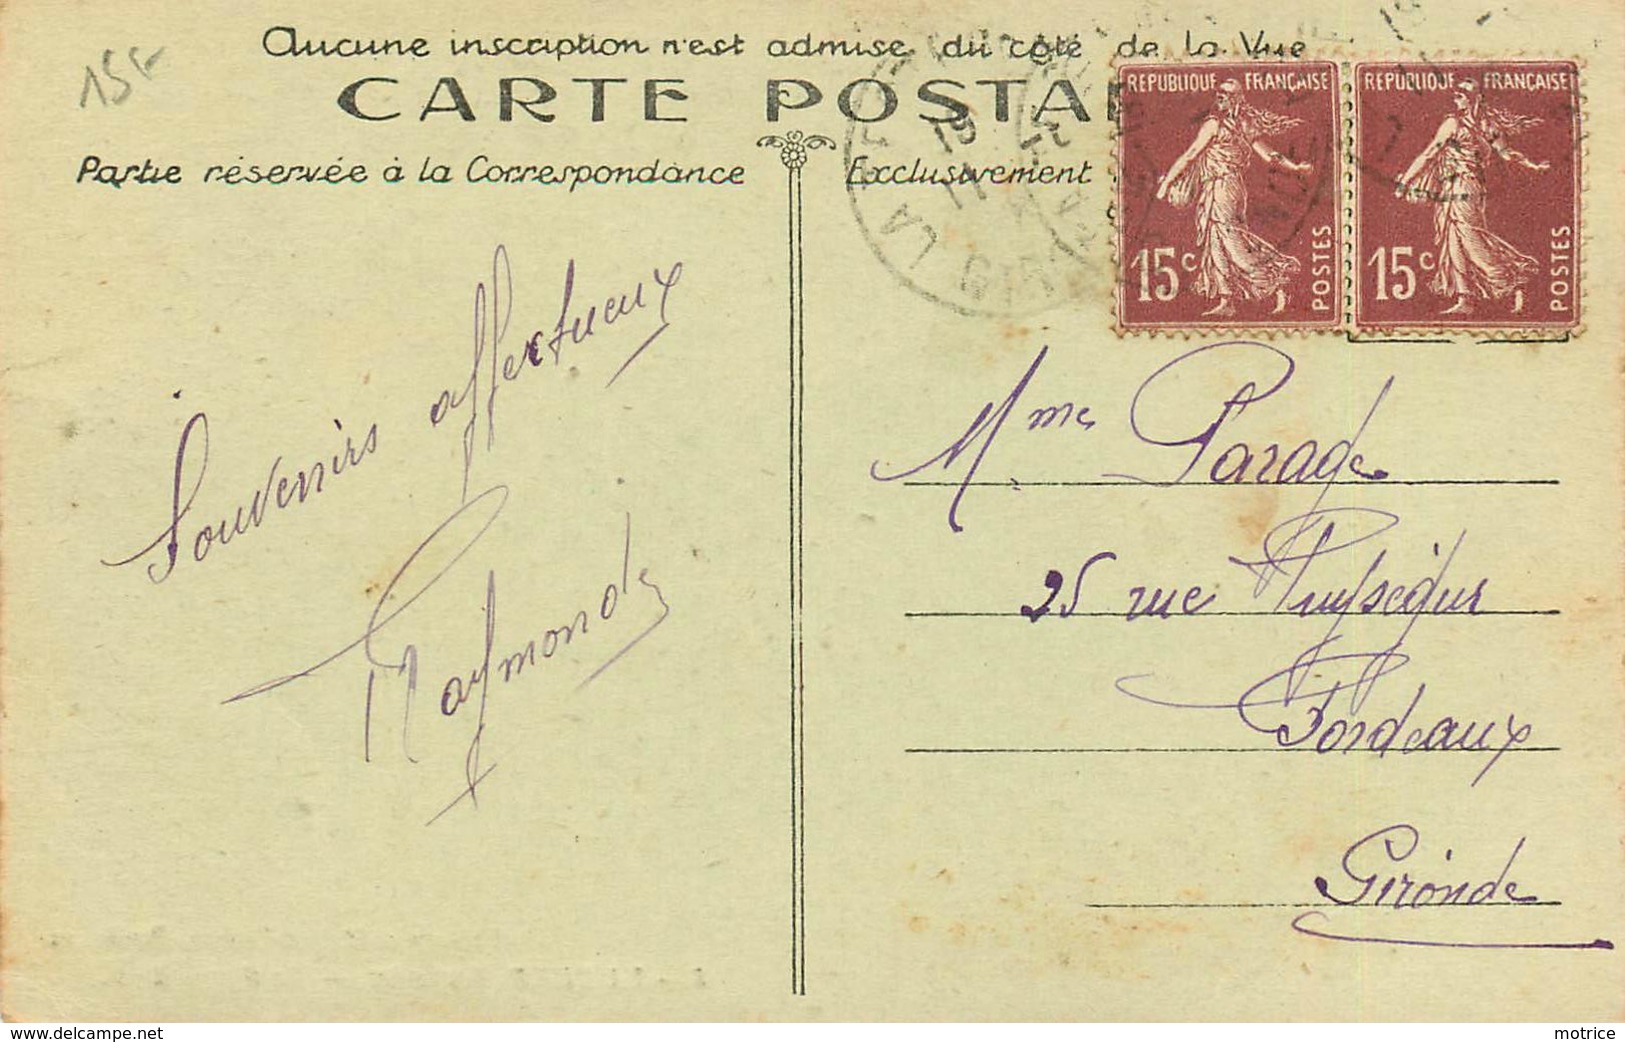 15F
Aucune inscription n'est admise du côté de la Vue
CARTE POSTA
Partie réservée à la Correspondance
Exclusivement
REPUBLIQUE FRANÇAISE
15c
POSTES
REPUBLIQUE FRANÇAISE
15c
POSTES
LA
19
11
GIRONDE
Souvenirs affectueux
Raymonde
Mme Parage
25 rue Puységur
Bordeaux
Gironde
www.delcampe.net
motrice